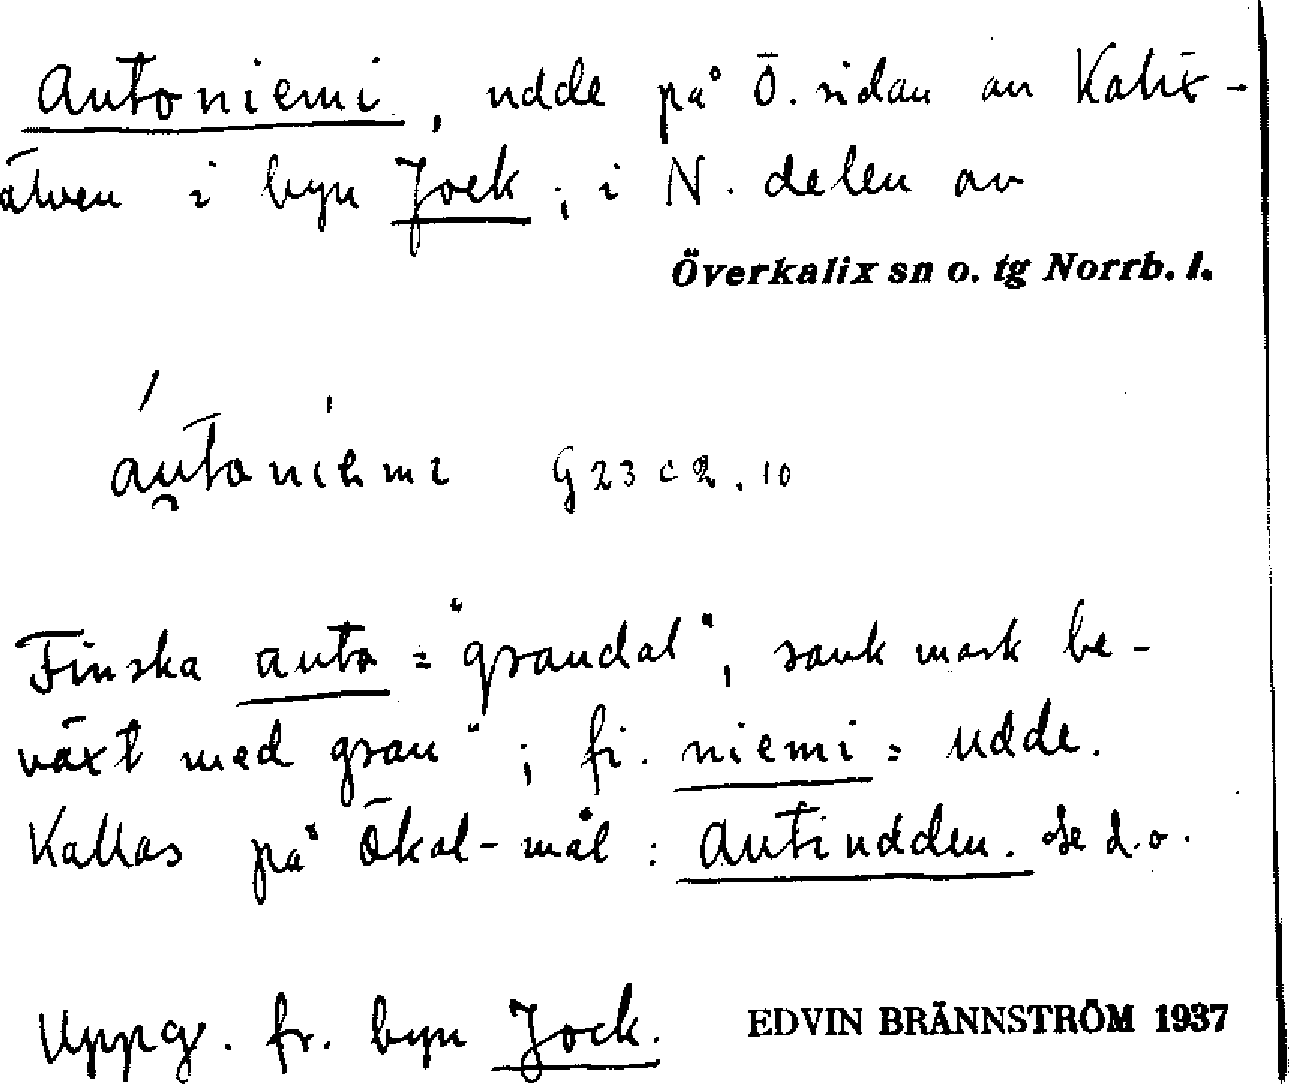 Autoniemi, udde på Ö. sidan av Kalix-
älven i byn Jock; i N. delen av
Överkalix sn o. tg Norrb. l.
áutoniemi G 23 c 2. 10
Finska auto = "grandal", sank mark be-
växt med gran"; fi. niemi = udde.
Kallas på Ökal-mål: Autiudden. Se d.o.
Uppg. fr. byn Jock. EDVIN BRÄNNSTRÖM 1937